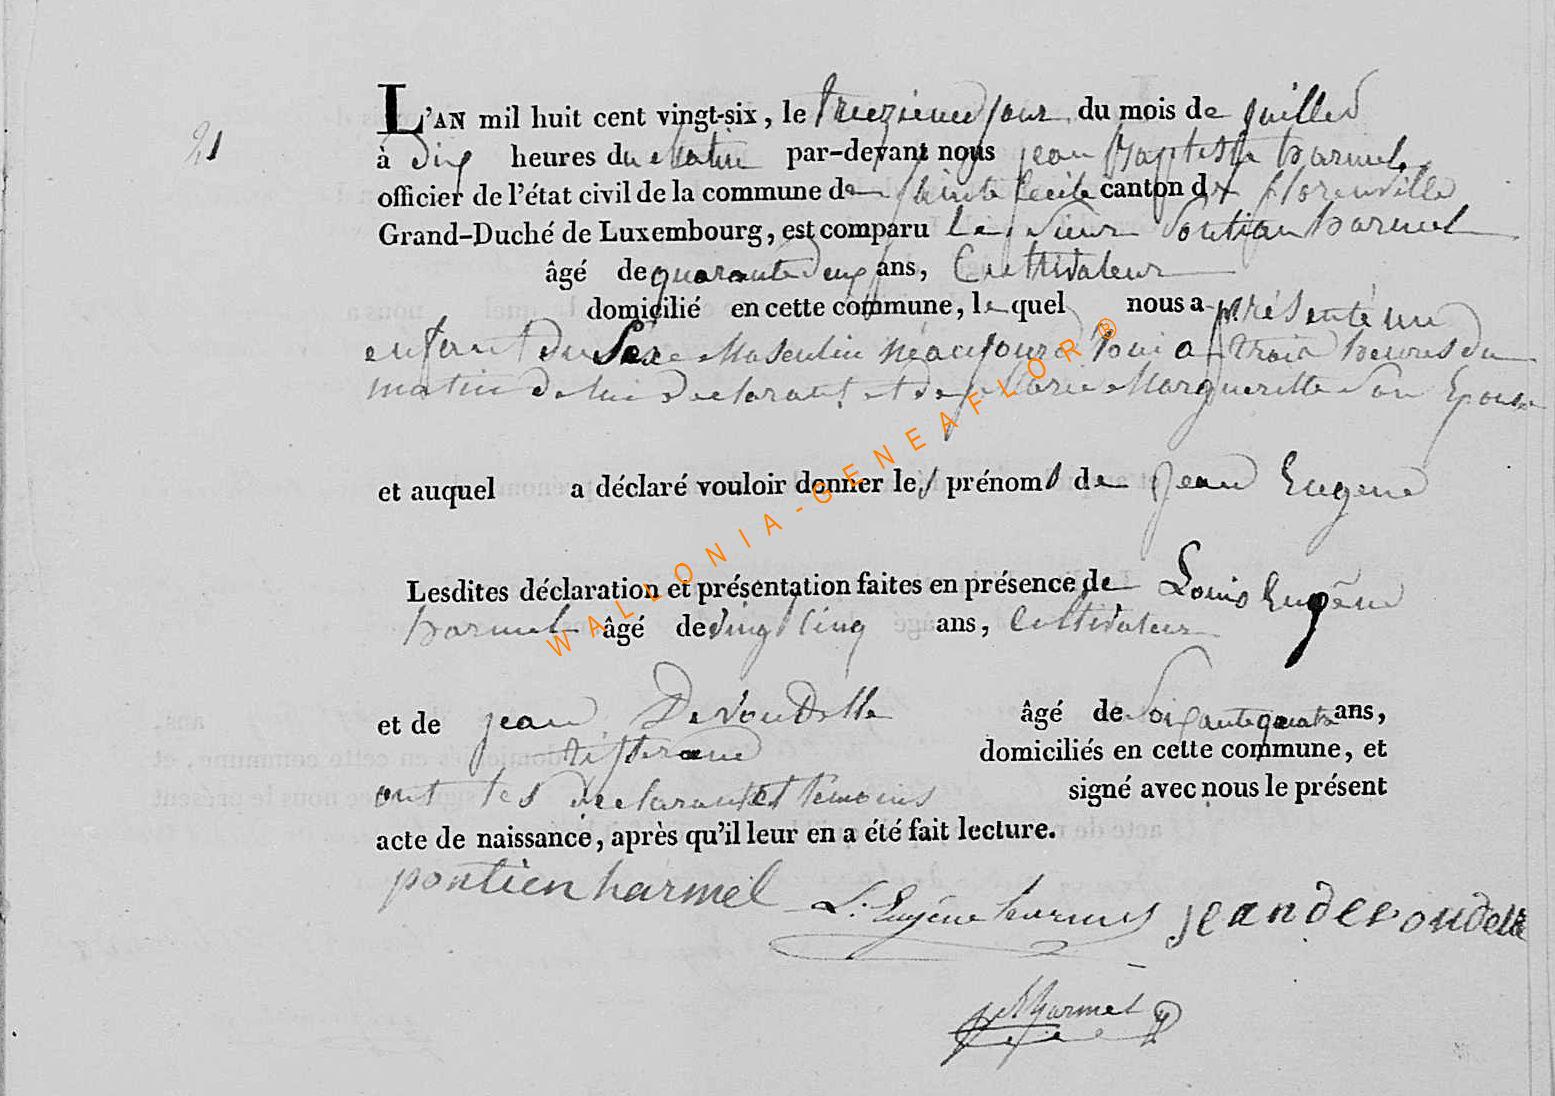 21
L'AN mil huit cent vingt-six, le treizieme jour du mois de juillet
à dix heures du matin par-devant nous jean Baptiste harmel
officier de l'état civil de la commune de Sainte Cecile canton de florenville
Grand-Duché de Luxembourg, est comparu le Sieur Pontian harmel
âgé de quarante deux ans, Cultivateur
domicilié en cette commune, le quel nous a présenté un
enfant du Sexe Masculin né aujourd'hui a trois heures du
matin de lui declarant et de Marie Margueritte Son Epouse
et auquel a déclaré vouloir donner les prénoms de jean Eugene
Lesdites déclaration et présentation faites en présence de Louis Eugêne
harmel âgé de vingt cinq ans, Cultivateur
et de jean Devoudelle âgé de Soixante quatre ans,
tisserand domiciliés en cette commune, et
ont les declarant et témoins signé avec nous le présent
acte de naissance, après qu'il leur en a été fait lecture.
pontien harmel L. Eugêne harmel jean devoudelle
JBharmel
WALLONIA-GENEAFLOR®